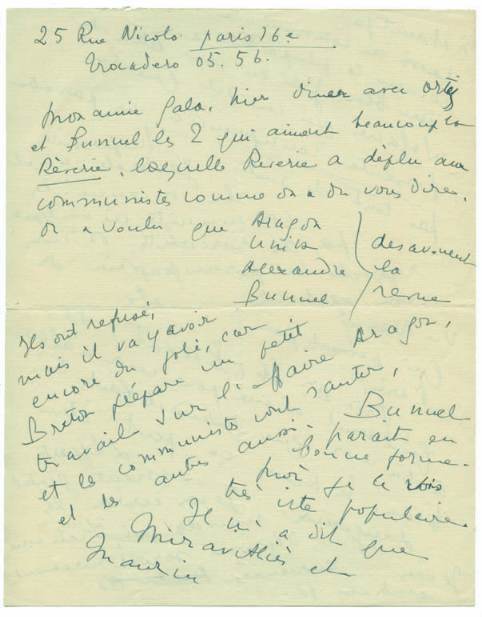 25 Rue Nicolo paris 16e
Trocadero 05.56.
Mon amie Gala, hier diner avec Ortiz
et Bunuel les 2 qui aiment beaucoup la
Rêverie, laquelle Reverie a déplu aux
communistes comme on a du vous dire.
on a voulu que Aragon
Unik
Alexandre
Bunuel
desavouent
la
revue
Ils ont refusé,
mais il va y avoir
encore du joli, car
Breton prépare un petit
travail sur l'Affaire Aragon,
et les communistes vont sauter,
et les autres aussi.
Bunuel
parait en
bonne forme.
moi je le vois
très populaire.
Il m'a dit que
Miravitlles et
Maurin